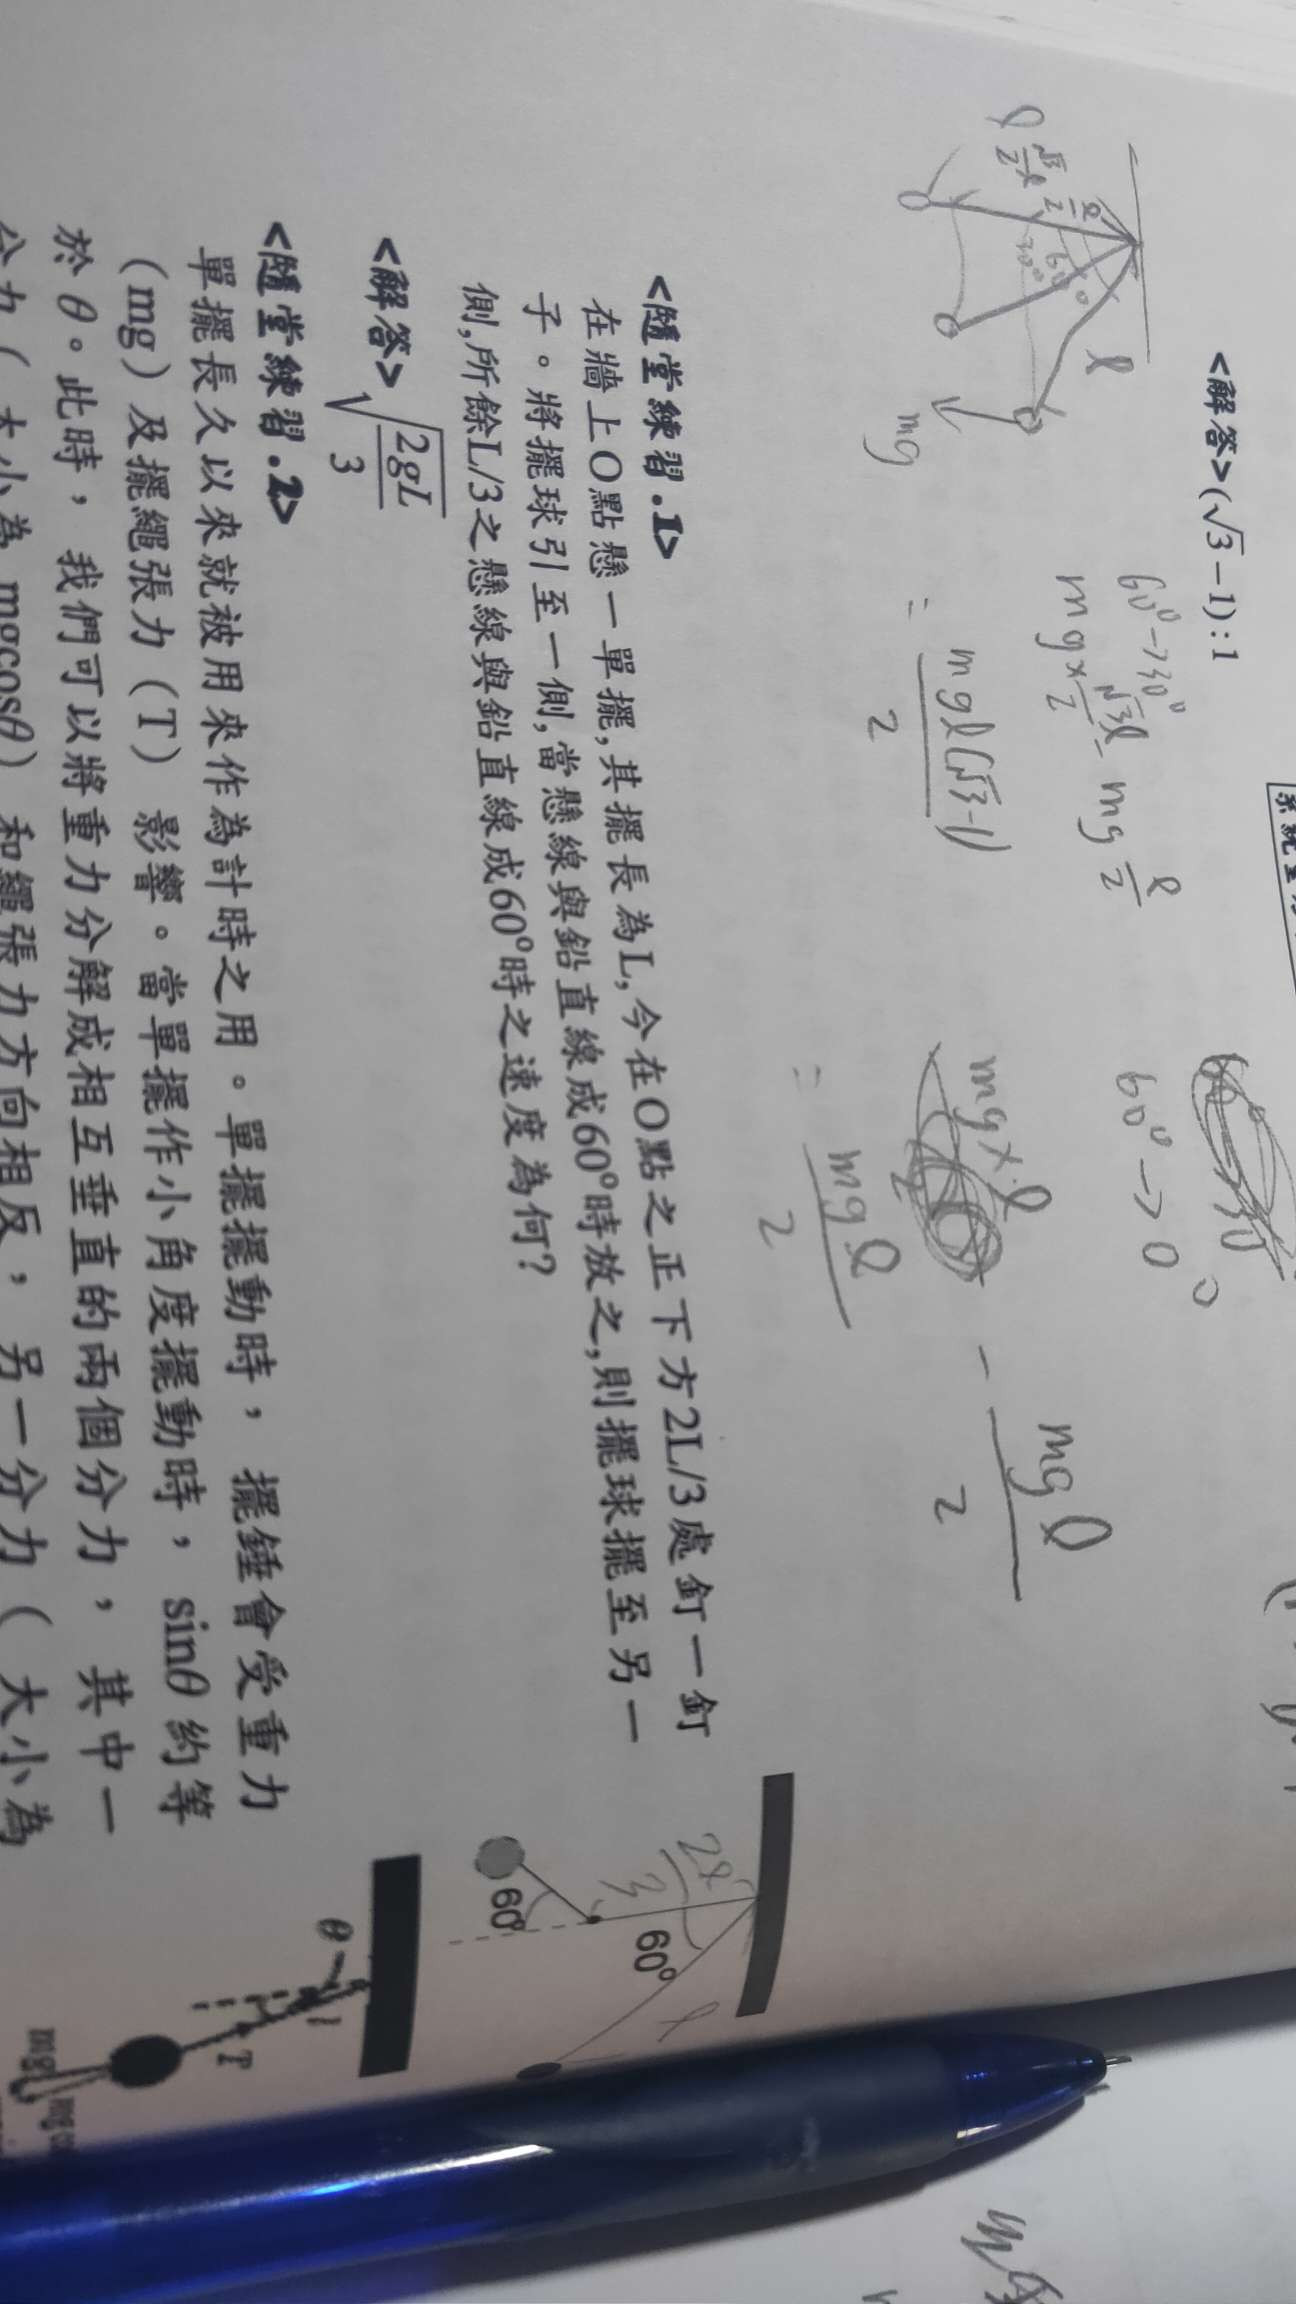 <解答>(√3−1):1
60°→30°
mg×√3/2 l − mg l/2
= mgl(√3−1)/2
60°→0°
mg×l − mgl/2
= mgl/2
l
l/2
√3/2 l
l
60°
30°
mg
<隨堂練習.1>
在牆上O點懸一單擺,其擺長為L,今在O點之正下方2L/3處釘一釘
子。將擺球引至一側,當懸線與鉛直線成60°時放之,則擺球擺至另一
側,所餘L/3之懸線與鉛直線成60°時之速度為何?
60°
60°
<解答>√(2gL/3)
<隨堂練習.2>
單擺長久以來就被用來作為計時之用。單擺擺動時，擺錘會受重力
（mg）及擺繩張力（T）影響。當單擺作小角度擺動時，sinθ約等
於θ。此時，我們可以將重力分解成相互垂直的兩個分力，其中一
分力（大小為mgcosθ）和繩張力方向相反，另一分力（大小為
θ
l
T
mg